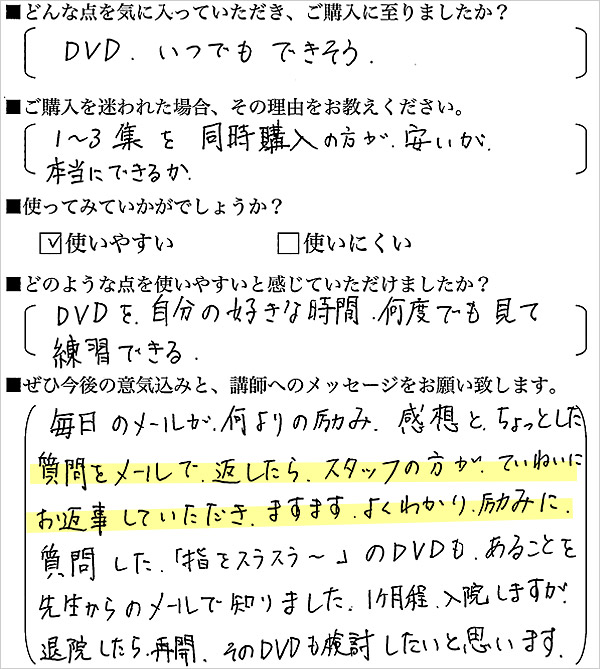 ■どんな点を気に入っていただき、ご購入に至りましたか？
DVD. いつでも できそう.
■ご購入を迷われた場合、その理由をお教えください。
1～3 集を 同時購入の方が. 安いが.
本当にできるか.
■使ってみていかがでしょうか？
☑使いやすい □使いにくい
■どのような点を使いやすいと感じていただけましたか？
DVDを. 自分の好きな時間. 何度でも見て
練習できる.
■ぜひ今後の意気込みと、講師へのメッセージをお願い致します。
毎日のメールが. 何よりの励み. 感想と. ちょっとした
質問をメールで. 返したら. スタッフの方が. ていねいに
お返事していただき. ますます. よくわかり. 励みに.
質問した. 「指をスラスラ～」のDVDも. あることを
先生からのメールで知りました. 1ヶ月程. 入院しますが.
退院したら. 再開. そのDVDも検討したいと思います.